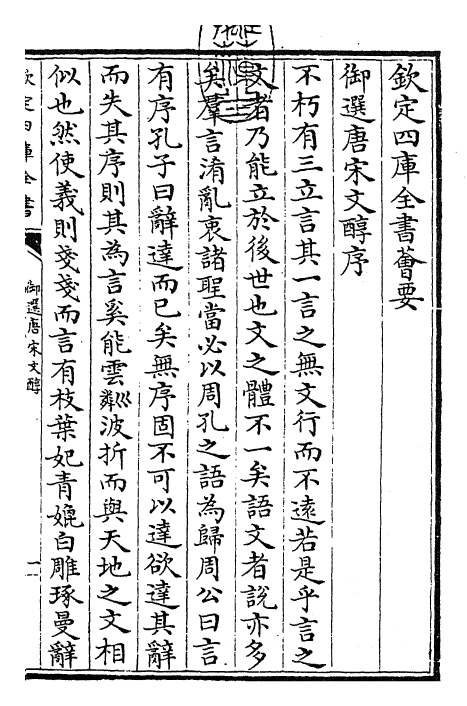 欽定四庫全書薈要
御選唐宋文醇序
不朽有三立言其一言之無文行而不遠若是乎言之
文者乃能立於後世也文之體不一矣語文者説亦多
矣羣言淆亂衷諸聖當必以周孔之語為歸周公曰言
有序孔子曰辭達而已矣無序固不可以達欲達其辭
而失其序則其為言奚能雲粼波折而與天地之文相
似也然使義則戔戔而言有枝葉妃青媲白雕琢曼辭
欽定四庫全書
御選唐宋文醇
一